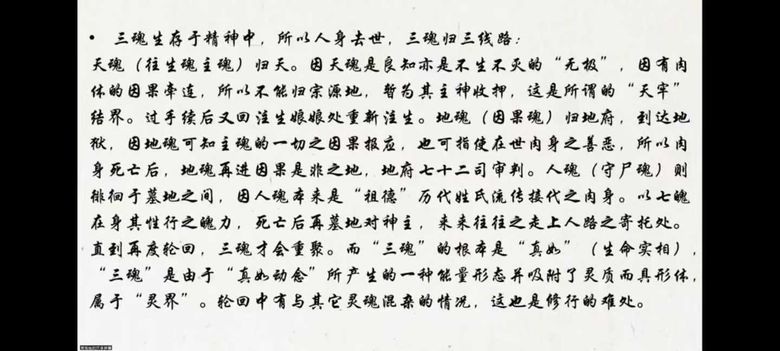 • 三魂生存于精神中，所以人身去世，三魂归三线路：
天魂（往生魂主魂）归天。因天魂是良知亦是不生不灭的“无极”，因有肉
体的因果牵连，所以不能归宗源地，暂为其主神收押，这是所谓的“天牢”
结界。过手续后又回注生娘娘处重新注生。地魂（因果魂）归地府，到达地
狱，因地魂可知主魂的一切之因果报应，也可指使在世肉身之善恶，所以肉
身死亡后，地魂再进因果是非之地，地府七十二司审判。人魂（守尸魂）则
徘徊于墓地之间，因人魂本来是“祖德”历代姓氏流传接代之肉身。以七魄
在身其性行之魄力，死亡后再墓地对神主，来来往往之走上人路之寄托处。
直到再度轮回，三魂才会重聚。而“三魂”的根本是“真如”（生命实相），
“三魂”是由于“真如动念”所产生的一种能量形态并吸附了灵质而具形体，
属于“灵界”。轮回中有与其它灵魂混杂的情况，这也是修行的难处。